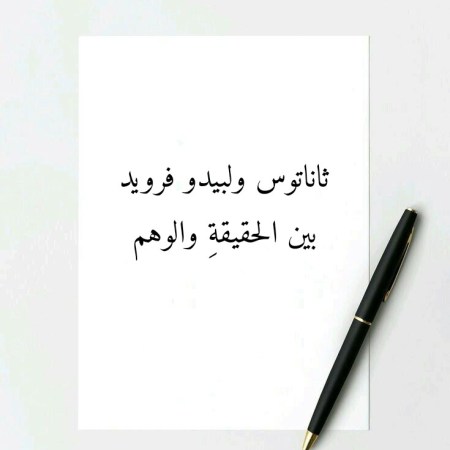 ثاناتوس ولبيدو فرويد
بين الحقيقةِ والوهم